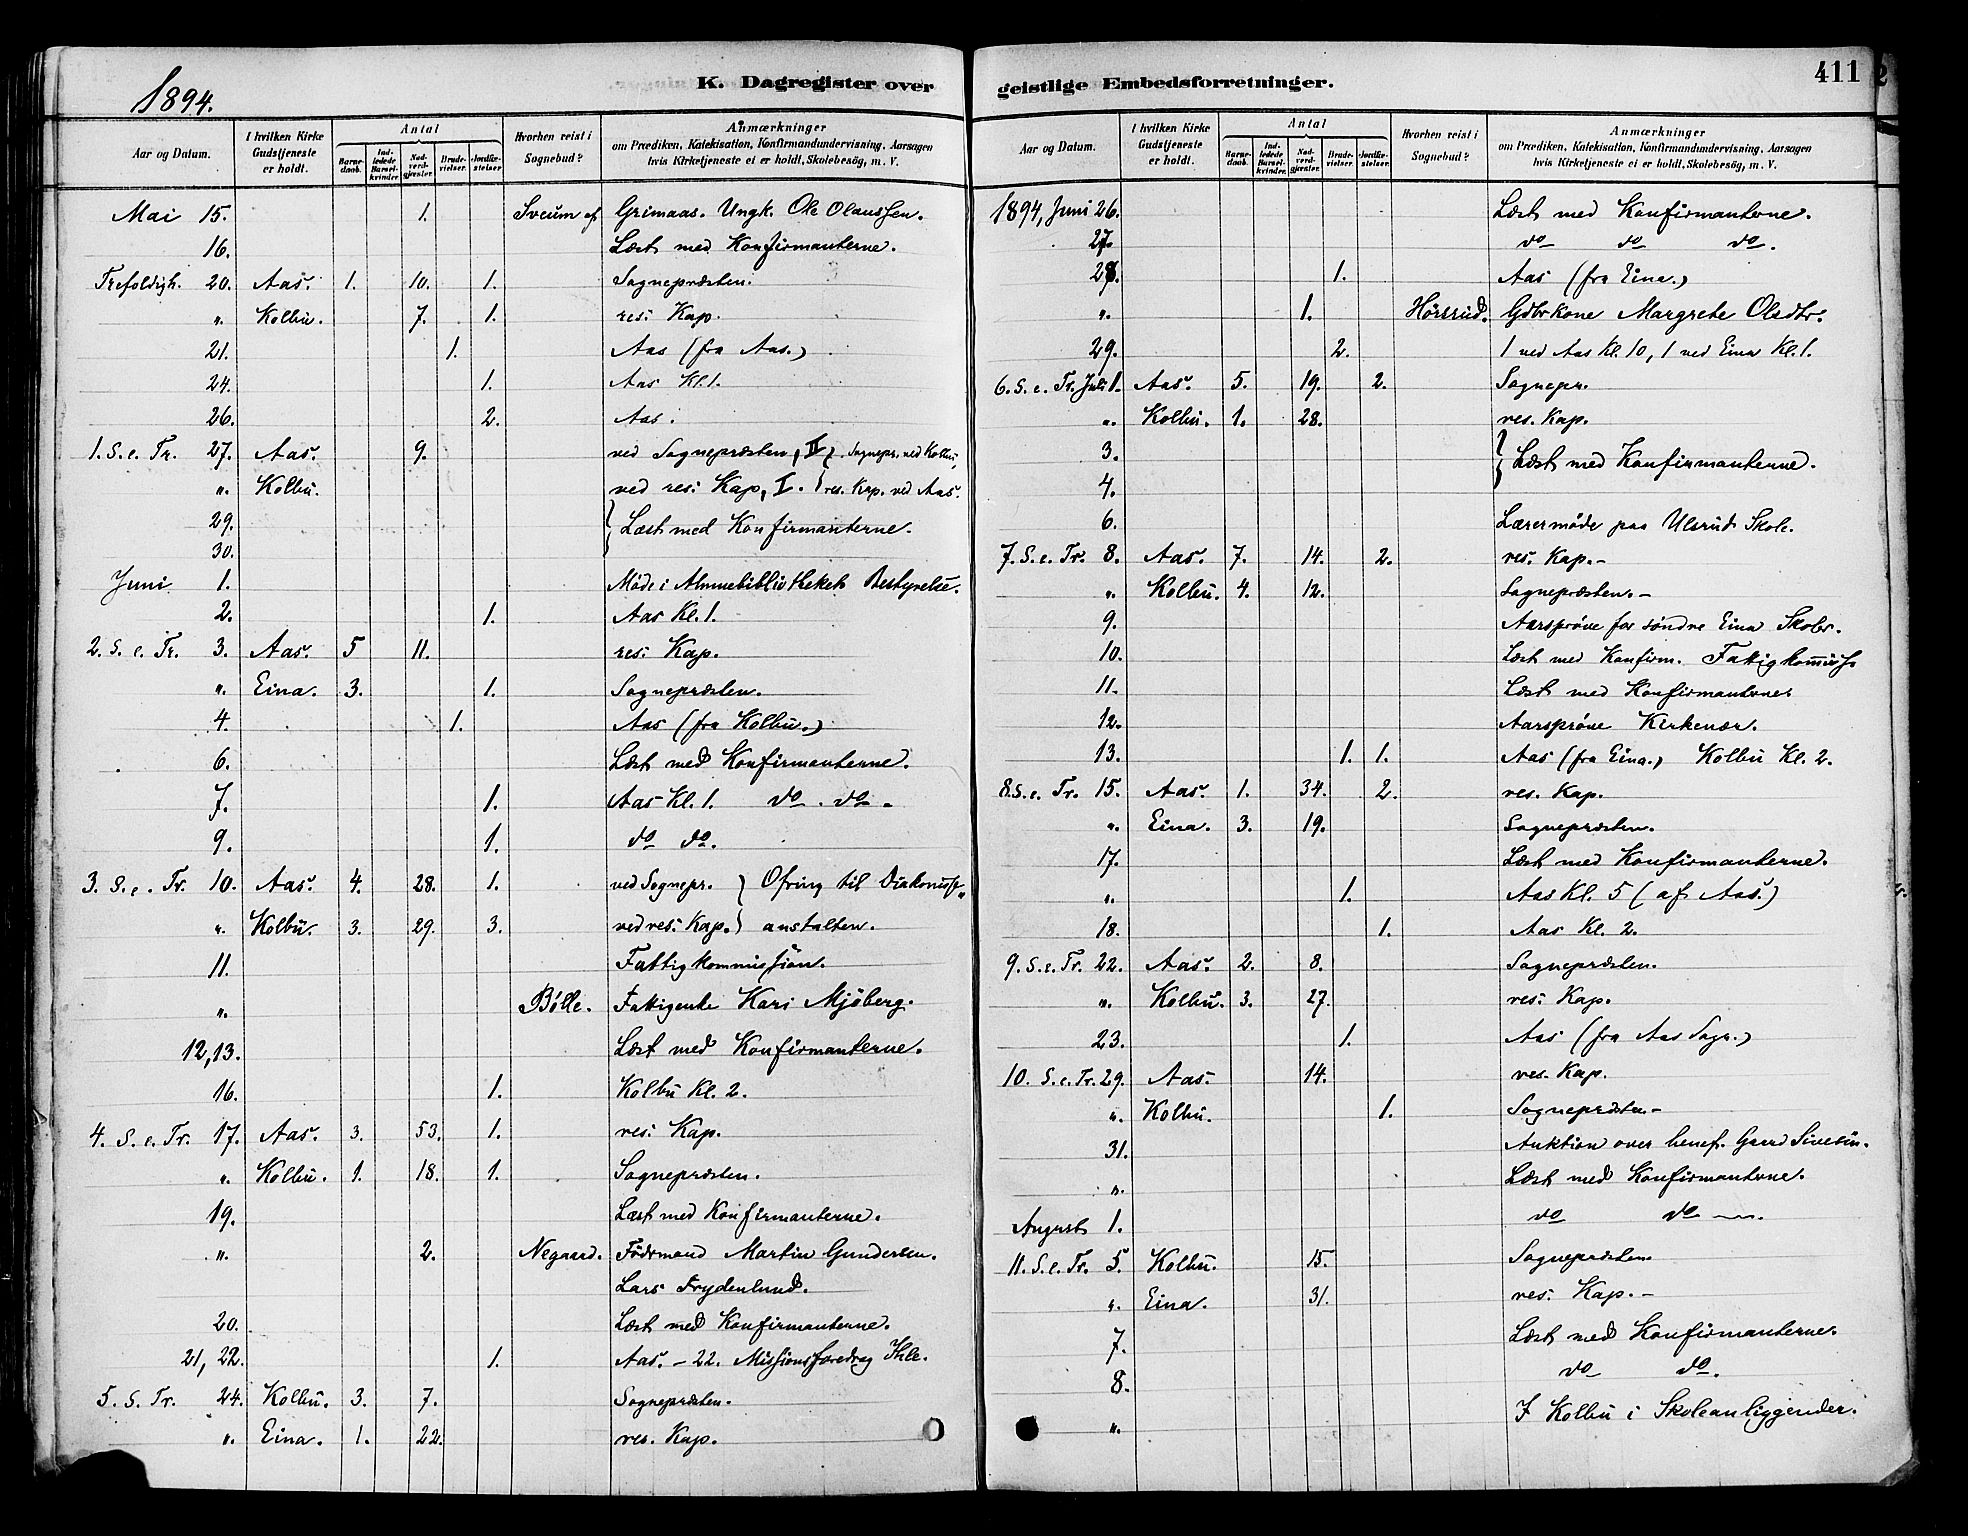 1894.
K. Dagregister over
Aar og Datum. I hvilken Kirke Gudstjeneste er holdt. Antal Barnedaab. Indledede Barselkvinder. Nadverdgjæster. Brudevielser. Jordfæstelser. Hvorhen reist i Sognebud? Anmærkninger om Prædiken, Katekisation, Konfirmandundervisning, Aarsagen hvis Kirketjeneste ei er holdt, Skolebesög, m. V.
Mai 15. 1. Sveum af Grimaas. Ungk. Ole Olaussen.
16. Læst med Konfirmanterne.
Trefoldigh. 20. Aas. 1. 10. 1. Sognepræsten.
". Kolbu. 7. 1. res: Kap.
21. 1. Aas (fra Aas.)
24. 1. Aas Kl. 1.
26. 2. Aas.
1. S. e. Tr. 27. Aas. 9. ved Sognepræsten, II } Sognepr. ved Kolbu,
". Kolbu. ved res: Kap, I. } res. Kap. ved Aas.
29. } Læst med Konfirmanterne.
30.
Juni 1. Möde i Almuebibliothekets Bestyrelse.
2. 1. Aas Kl. 1.
2. S. e. Tr. 3. Aas. 5 11. res: Kap.
". Eina. 3. 1. Sognepræsten.
4. 1. Aas (fra Kolbu.)
6. Læst med Konfirmanterne.
7. 1. Aas Kl. 1. do . do .
9. 1. do do.
3. S. e. Tr. 10. Aas. 4. 28. 1. ved Sognepr. } Ofring til Diakonisse„
". Kolbu. 3. 29. 3. ved res: Kap. } anstalten.
11. Fattigkommission.
". Bölle. Fattigenke Kari Mjöberg.
12, 13. Læst med Konfirmanterne.
16. 1. Kolbu Kl. 2.
4. S. e. Tr. 17. Aas. 3. 53. 1. res: Kap.
". Kolbu. 1. 18. 1. Sognepræsten.
19. Læst med Konfirmanterne.
". 2. Negaard. Födrmand Martin Gundersen.
Lars Frydenlund.
20. Læst med Konfirmanterne.
21, 22. 1. Aas. – 22. Missionsforedrag Ihle.
5. S. Tr. 24. Kolbu. 3. 7. Sognepræsten.
". Eina. 1. 22. res. Kap.
geistlige Embedsforretninger.
411
Aar og Datum. I hvilken Kirke Gudstjeneste er holdt. Antal Barnedaab. Indledede Barselkvinder. Nadverdgjæster. Brudevielser. Jordfæstelser. Hvorhen reist i Sognebud? Anmærkninger om Prædiken, Katekisation, Konfirmandundervisning, Aarsagen hvis Kirketjeneste ei er holdt, Skolebesög, m. V.
1894, Juni 26. Læst med Konfirmanterne.
27. do do do.
28. 1. Aas (fra Eina.)
". 1. Hörsrud. Gdbrkone Margrete Olsdtr.
29. 2. 1 ved Aas Kl. 10, 1 ved Eina Kl. 1.
6. S. e. Tr. Juli 1. Aas. 5. 19. 2. Sognepr.
". Kolbu. 1. 28. res. Kap.
3. } Læst med Konfirmanterne.
4.
6. Lærermöde paa Ulsrud Skole.
7. S. e. Tr. 8. Aas. 7. 14. 2. res. Kap. –
". Kolbu. 4. 12. Sognepræsten. –
9. Aarspröve for söndre Eina Skoler.
10. Læst med Konfirm. Fattigkommiss
11. Læst med Konfirmanterne
12. Aarspröve Kirkenær.
13. 1. 1. Aas (fra Eina.) Kolbu Kl. 2.
8. S. e. Tr. 15. Aas. 1. 34. 2. res. Kap.
". Eina. 3. 19. Sognepræsten.
17. Læst med Konfirmanterne.
". 1. Aas Kl. 5 (af Aas.)
18. 1. Aas Kl. 2.
9. S. e. Tr. 22. Aas. 2. 8. Sognepræsten.
". Kolbu. 3. 27. res: Kap.
23. 1. Aas (fra Aas Sogn.)
10. S. e. Tr. 29. Aas. 14. res. Kap.
". Kolbu. 1. Sognepræsten –
31. Auktion over benef. Gaard
". Læst med Konfirmanterne.
August 1. do do
11. S. e. Tr. 5. Kolbu. 15. Sognepræsten
". Eina. 31. res: Kap. –
7. Læst med Konfirmanterne.
8. do do.
". I Kolbu i Skoleanliggender.